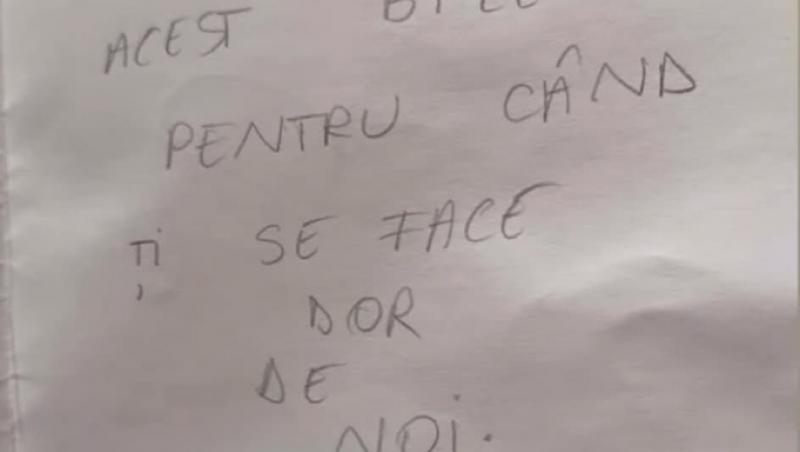 ACEST
PENTRU CÂND
ȚI SE FACE
DOR
DE
NOI.